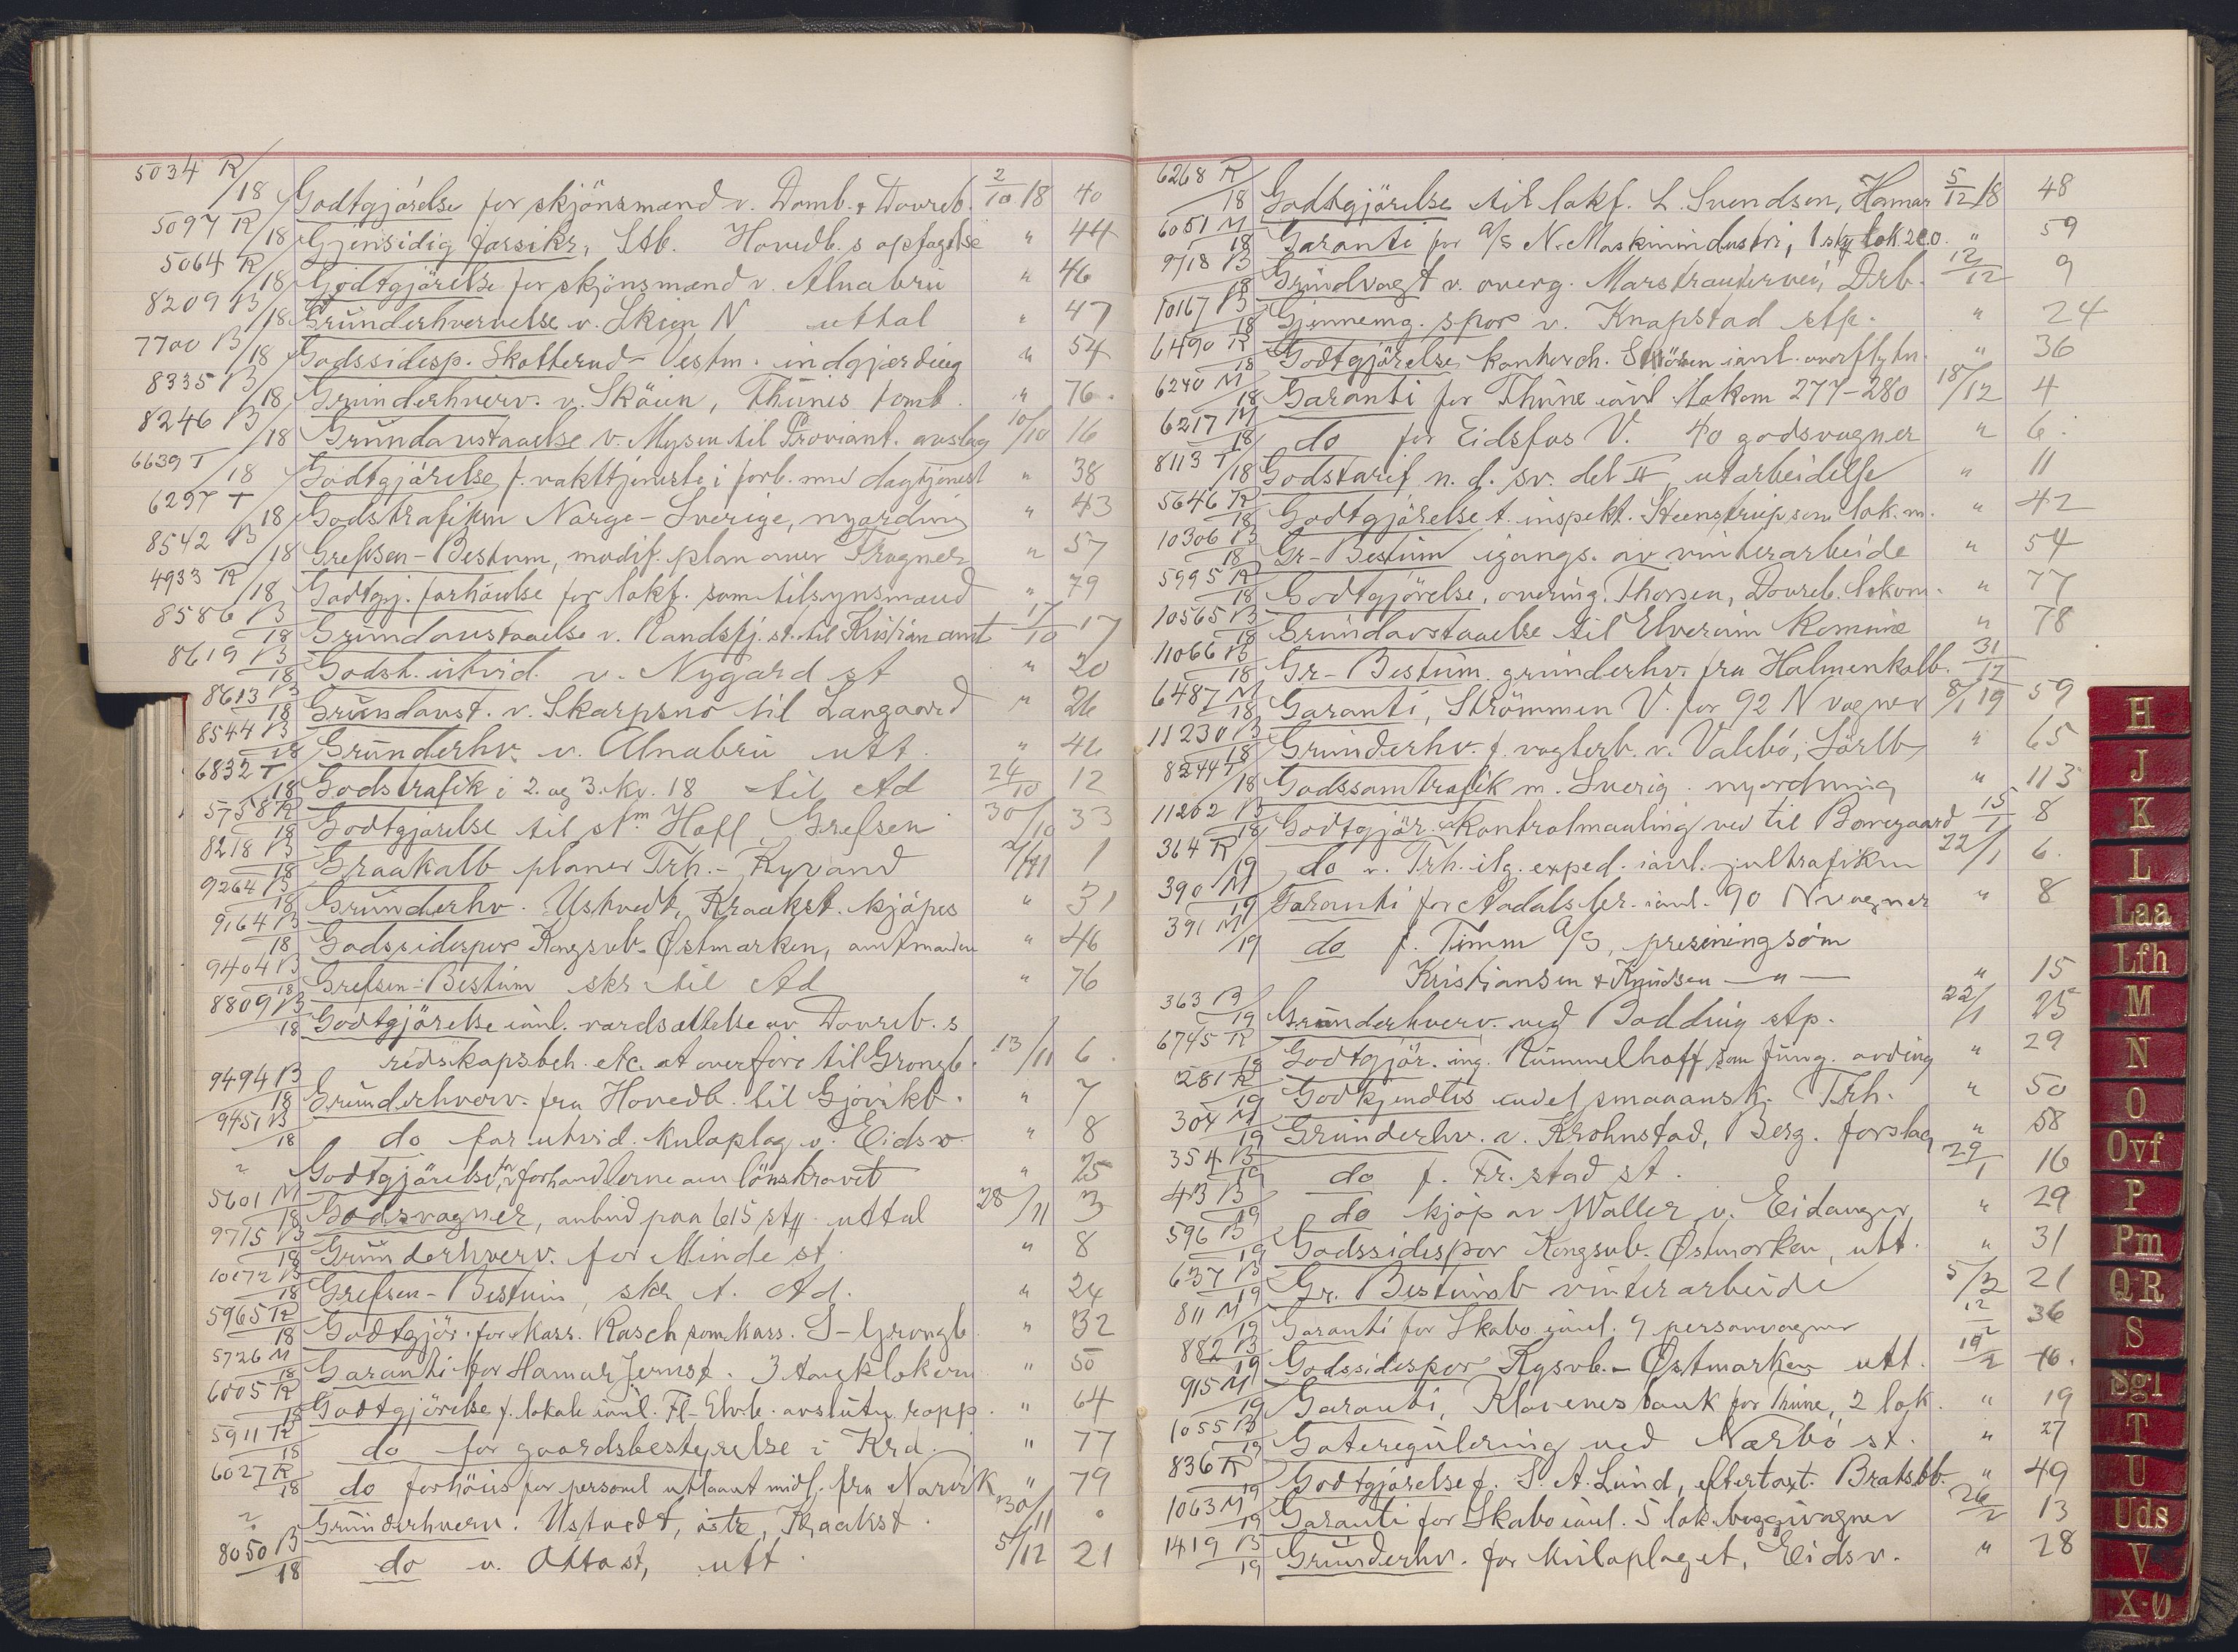 5034 R/18 Godtgjörelse for skjönsmænd v. Domb. & Dovreb. 2/10 18 40
5097 R/18 Gjensidig forsikr, Stb. Hovedb.s optagelse " 44
5064 R/18 Godtgjörelse for skjönsmænd v. Alnabru " 46
8209 B/18 Grunderhvervelse v. Skien N uttal " 47
7700 B/18 Godssidesp. Skotterud-Vestm. indgjerding " 54
8335 B/18 Grunderhverv. v. Sköien, Thunes tomt. " 76.
8246 B/18 Grundavstaaelse v. Mysen til Proviant. avslag 10/10 16
6639 T/18 Godtgjörelse f. vakttjeneste i forb. med dagtjenest " 38
6297 T/18 Godstrafiken Norge-Sverige, nyordning " 43
8542 B/18 Grefsen-Bestum, modif. plan over Frogner " 57
4933 R/18 Godtgj. forhöielse for lokf. som tilsynsmænd " 79
8586 B/18 Grundavstaaelse v. Randsfj. st. til Kristian amt 17/10 17
8619 B/18 Godsh. utvid. v. Nygard st " 20
8613 B/18 Grundavst. v. Skarpsno til Langaard " 26
8544 B/18 Grunderhv. v. Alnabru utt. " 46
6832 T/18 Godstrafik i 2. og 3. kv. 18 til Ad 24/10 12
5758 R/18 Godtgjörelse til stm Hoff, Grefsen 30/10 33
8218 B/18 Graakalb planer Trh.-Kyvand 1
9264 B/18 Grunderhv. Ustvedt, Kraakst. kjöpes " 31
9164 B/18 Godssidespor Kongsvb.-Østmarken, amtmanden " 46
9404 B/18 Grefsen-Bestum skr til Ad " 76
8809 B/18 Godtgjörelse ianl. værdsættelse av Dovreb.s
redskapsbeh. etc. at overföre til Grongb. 13/11 6.
9494 B/18 Grunderhverv. fra Hovedb. til Gjövikb. " 7
9451 B/18 do for utvid. kuloplag v. Eidsv " 8
" Godtgjörelse forhandlerne om lönskravet " 25
5601 M/18 Godsvagner, anbud paa 615 st uttal 28/11 3
9715 B/18 Grunderhverv. for Minde st " 8
10072 B/18 Grefsen-Bestum, skr t. Ad. " 24
5965 R/18 Godtgjör. for kass. Rasch som kass. S-Grongb " 32
5726 M/18 Garanti for Hamar Jernst. 3 tanklokom " 50
6005 R/18 Godtgjörelse f. lokale ianl. Fl-Elvb. avslutn. ropp. " 64
5911 R/18 do for gaardsbestyrelse i Kra. " 77
6027 R/18 do forhöies for personel utlaant midl. fra Narvik " 79
" Grunderhverv. Ustvedt, östre, Kraakst. 30/11
8050 B/18 do v. Otta st, utt. 5/12 21
6268 R/18 Godtgjörelse til lokf. L. Svendsen, Hamar 5/12 18 48
6051 M/18 Garanti for A/S N. Maskinindustri, 1 lok 2co. " 59
9718 B/18 Grindvagt v. overg. Marstranderveí, Drb. 12/12 9
10167 B/18 Gjennemg. spor v. Knapstad stp. " 24
6490 R/18 Godtgjörelse, kontorch. ianl. overflytn. " 36
6240 M/18 Garanti for Thune ianl lokom 277-280 18/12 4
6217 M/18 do for Eidsfos V. 40 godsvagner " 6.
8113 T/18 Godstarif n. d. sv. del II, utarbeidelse " 11
5646 R/18 Godtgjörelse t. inspekt. Steenstrup som lok. m. " 42
10306 B/18 Gr-Bestum igangs. av vinterarbeide " 54
5995 R/18 Godtgjörelse, overing. Thorsen, Dovreb. lokom. " 77
10565 B/18 Grundavstaaelse til Elverum Komune " 78
11066 B/18 Gr-Bestum. grunderhv. fra Holmenkolb. 31/12
6487 M/18 Garanti, Strömmen V. for 92 N vogner 8/1 19 59
11230 B/18 Grunderhv. f. vogterb. v. Valebö, Sörlb " 65
8244 T/18 Godssamtrafik m. Sverig. nyordning " 113
11202 B/18 Godtgjör. kontrolmaaling ved til Borregaard 15/1 8
364 R/19 do v. Trh. ilg. exped. ianl. jultrafiken 22/1 6.
390 M/19 Garanti for Aadals br. ianl. 90 N vogner " 8
391 M/19 do f. Timm A/S, preseningsöm
Kristiansen & Knudsen — " — " 15
363 B/19 Grunderhverv. ved Bodding stp. 22/1 25
6745 R/18 Godtgjör. ing. Rummelhoff som fung. avding " 29
281 R/19 Godkjendtes andel smaaansk. Trh. " 50
304 M/19 Grunderhv. v. Krohnstad, Berg. forslag " 58
354 B/19 do f. Fr. stad st. 29/1 16
413 B/19 do kjöp av Waller v. Eidanger " 29
596 B/19 Godssidespor Kongsvb. Østmorken, utt. " 31
637 B/19 Gr. Bestumb vinterarbeide 5/2 21
811 M/19 Garanti for Skabo ianl. 9 personvogner 12/2 36
882 B/19 Godssidespor Kgsvb.-Østmarken utt. 19/2 10.
915 M/19 Garanti, Klavenes bank for Thune, 2 lok. " 19
1055 B/19 Gateregulering ved Nærbö st. " 27
836 R/19 Godtgjörelse f. S. A. Lund, eftertaxt. Bratsbb. " 49
1063 M/19 Garanti for Skabo ianl. 5 lok. boggivogner 26/2 13
1419 B/19 Grunderhv. for kuloplaget, Eidsv. " 28
H
J
K
L
Laa
Lfh
M
N
O
Ovf
P
Pm
QR
S
Sgl
T
U
Uds
V
X-Ø